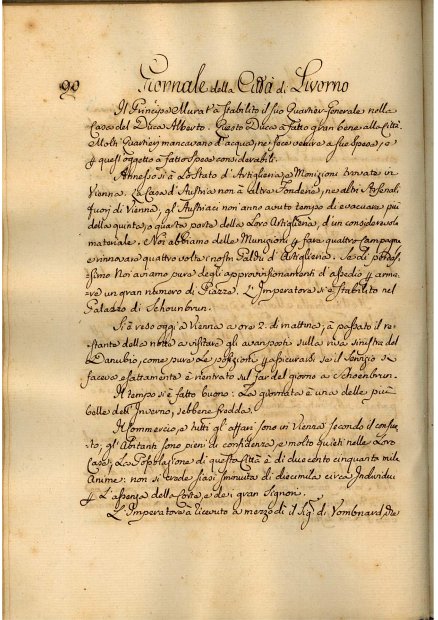 90 Giornale della Città di Livorno
Il Principe Murat à stabilito il suo Quartier-Generale nella
Casa del Duca Alberto. Questo Duca à fatto gran bene alla Città.
Molti Quartieri mancavano d'acqua, ne fece venire a sue spese, e
quest'oggetto à fatto spese considerabili.
Annesso si à lo stato d'Artiglieria, e Monizioni trovate in
Vienna. La Casa d'Austria non à altre Fonderie, ne altri Arsenali
fuori di Vienna, gl'Austriaci non anno avuto tempo di evacuare più
della quinta, o quarta parte della Loro Artiglieria, d'un considerevole
materiale. Noi abbiamo delle Munizioni per fare quattro Campagne
e rinnovare quattro volte i nostri d'Artiglieria. Se di
Noi aviamo pure degli approvisionamenti d'assedio per arma-
re un gran numero di Piazze. L'Imperatore si è stabilito nel
Palazzo di Schounbrun.
Si è reso oggi a Vienna a ore 2. di mattina, à passato il re-
stante della notte a visitare gli avanposti sulla riva sinistra del
Danubio, come pure le posizioni per assicurarsi se il servizio si
faceva esattamente è rientrato sul far del giorno a Schoenbrun.
Il tempo si è fatto buono: La giornata è una delle più
belle dell'Inverno, sebbene fredda.
Il Commercio, e tutti gl'affari sono in Vienna secondo il consue-
to, gl'Abitanti sono pieni di confidenza, e molto quieti nelle Loro
Case, La Popolazione di questa Città è di duecento cinquanta mila
Anime: non si crede siasi sminuita di diecimila circa Individui
per l'assenza della Corte, e dei gran Signori.
L'Imperatore à ricevuto a mezzo dì il Sig. di